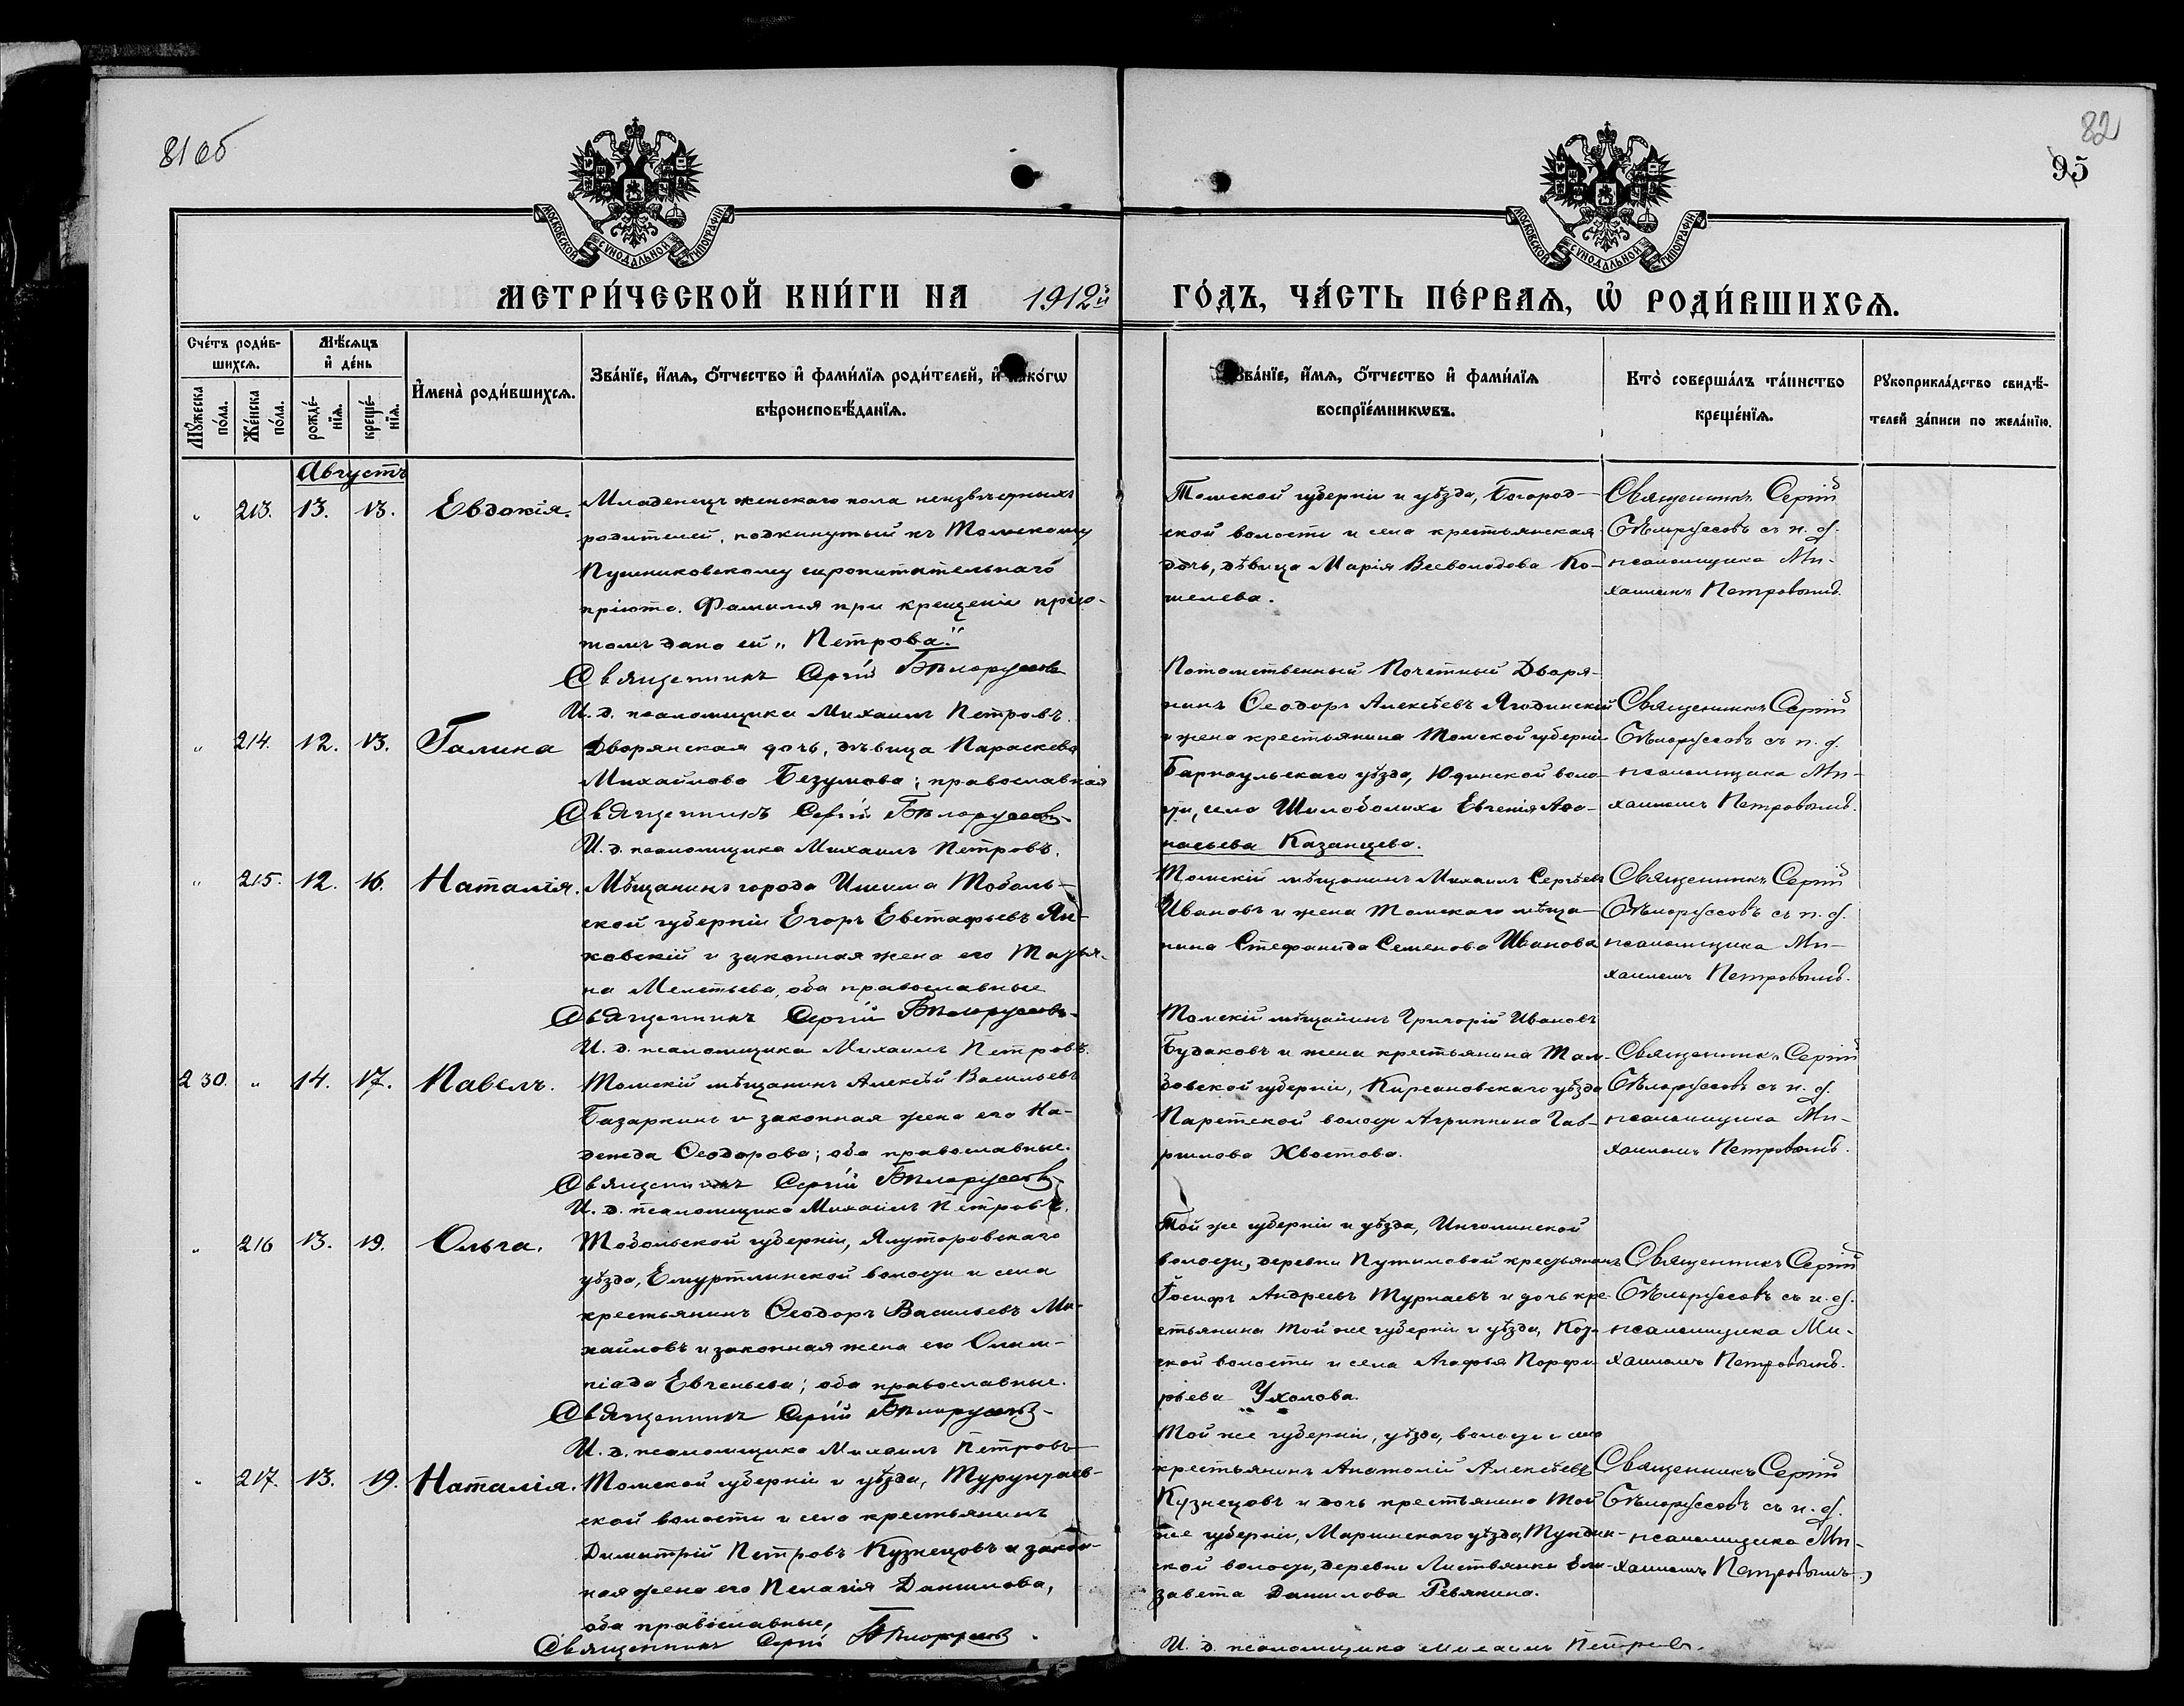 81 об
82
95
МОСКОВСКОЙ СѴНОДАЛЬНОЙ ТИПОГРАФІИ
МОСКОВСКОЙ СѴНОДАЛЬНОЙ ТИПОГРАФІИ
МЕТРИ́ЧЕСКОЙ КНИ́ГИ НА 1912й ГО́ДЪ, ЧА́СТЬ ПЕ́РВАѦ, Ѡ҆ РОДИ́ВШИХСѦ.
Сче́тъ роди́в-
шихсѧ.
Мꙋ́жеска по́ла.
Же́нска по́ла.
Мѣ́сѧцъ
и҆ де́нь
рожде́-
нїѧ.
креще́-
нїѧ.
И҆мена̀ роди́вшихсѧ.
Зва́нїе, и҆́мѧ, ѻ҆́тчество и҆ фами́лїѧ роди́телей, и҆ како́гѡ
вѣроисповѣ́данїѧ.
Зва́нїе, и҆́мѧ, ѻ҆́тчество и҆ фами́лїѧ
воспрїе́мникѡвъ.
Кто̀ соверша́лъ та́инство
креще́нїѧ.
Рꙋкоприкла́дство свидѣ́-
телей за́писи по жела́нїю.
Августъ
" 213. 13. 13. Евдокія.
Младенецъ женскаго пола неизвѣстныхъ
родителей, подкинутый къ Томскому
Пушниковскому сиропитательнаго
пріюта. Фамилія при крещеніи прію-
томъ дана ей „Петрова".
Священникъ Сергій Бѣлоруссовъ
И. д. псаломщика Михаилъ Петровъ.
Томской губерніи и уѣзда, Богород-
ской волости и села крестьянская
дочь, дѣвица Марія Всеволодова Ко-
шелева.
Священникъ Сергій
Бѣлоруссовъ съ и. д.
псаломщика Ми-
хаиломъ Петровымъ.
" 214. 12. 13. Галина
Дворянская дочь, дѣвица Параскева
Михайлова Безумова; православная
Священникъ Сергій Бѣлоруссовъ
И. д. псаломщика Михаилъ Петровъ.
Потомственный Почетный Дворя-
нинъ Ѳеодоръ Алексѣевъ Ягодинскій
и жена крестьянина Томской губерніи
Барнаульскаго уѣзда, Юдинской воло-
сти, села Шилоболиха Евгенія Аѳа-
насьева Казанцева.
Священникъ Сергій
Бѣлоруссовъ съ и. д.
псаломщика Ми-
хаиломъ Петровымъ.
" 215. 12. 16. Наталія.
Мѣщанинъ города Ишима Тоболь-
ской губерніи Егоръ Евстафьевъ Ян-
ковскій и законная жена его Татья-
на Мелетьева, оба православные
Священникъ Сергій Бѣлоруссовъ
И. д. псаломщика Михаилъ Петровъ.
Томскій мѣщанинъ Михаилъ Сергѣевъ
Ивановъ и жена Томскаго мѣща-
нина Стефанида Семенова Иванова
Священникъ Сергій
Бѣлоруссовъ съ и. д.
псаломщика Ми-
хаиломъ Петровымъ.
230. " 14. 17. Павелъ.
Томскій мѣщанинъ Алексѣй Васильевъ
Базаркинъ и законная жена его На-
дежда Ѳеодорова; оба православные.
Священникъ Сергій Бѣлоруссовъ
И. д. псаломщика Михаилъ Петровъ.
Томскій мѣщанинъ Григорій Ивановъ
Будаковъ и жена крестьянина Там-
бовской губерніи, Кирсановскаго уѣзда
Паретской волости Агриппина Гав-
рилова Хвостова.
Священникъ Сергій
Бѣлоруссовъ съ и. д.
псаломщика Ми-
хаиломъ Петровымъ.
" 216 13. 19. Ольга.
Тобольской губерніи, Ялуторовскаго
уѣзда, Емуртлинской волости и села
крестьянинъ Ѳеодоръ Васильевъ Ми-
хайловъ и законная жена его Олим-
піада Евгеньева; оба православные.
Священникъ Сергій Бѣлоруссовъ
И. д. псаломщика Михаилъ Петровъ
Той же губерніи и уѣзда, Ингалинской
волости, деревни Путиловой крестьянинъ
Іосифъ Андреевъ Турнаевъ и дочь кре-
стьянина той же губерніи и уѣзда,
ской волости и села Агафья Порфи-
рьева Ухалова.
Священникъ Сергій
Бѣлоруссовъ съ и. д.
псаломщика Ми-
хаиломъ Петровымъ.
" 217. 13. 19. Наталія.
Томской губерніи и уѣзда, Турунтаев-
ской волости и села крестьянинъ
Димитрій Петровъ Кузнецовъ и закон-
ная жена его Пелагія Данилова,
оба православные,
Священникъ Сергій Бѣлоруссовъ.
Той же губерніи, уѣзда, волости и села
крестьянинъ Анатолій Алексѣевъ
Кузнецовъ и дочь крестьянина той
же губерніи, Маріинскаго уѣзда,
ской волости, деревни Листвянки Ели-
завета Данилова Ревякина.
Священникъ Сергій
Бѣлоруссовъ съ и. д.
псаломщика Ми-
хаиломъ Петровымъ,
И. д. псаломщика Михаилъ Петровъ.